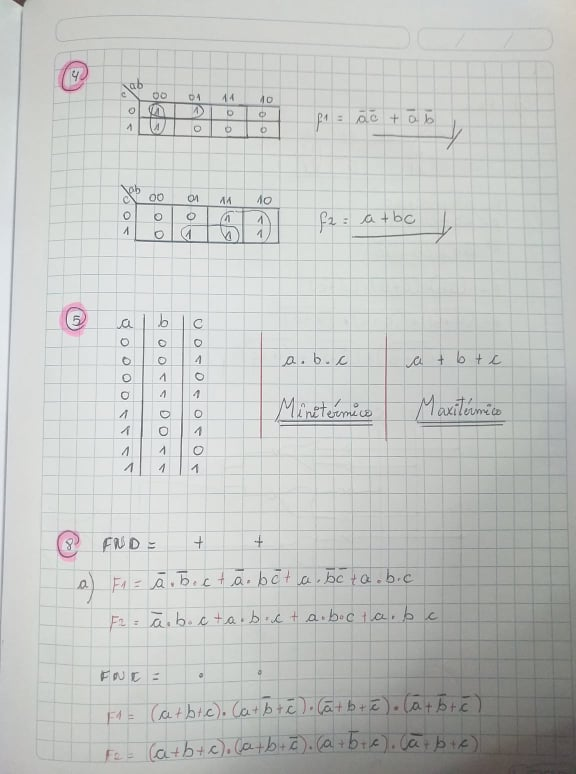 4
ab
c 00 01 11 10
0 1 1 0 0
1 1 0 0 0
f1 = a̅c̅ + a̅ b̅
ab
c 00 01 11 10
0 0 0 1 1
1 0 1 1 1
f2 = a + bc
5
a b c
0 0 0
0 0 1
0 1 0
0 1 1
1 0 0
1 0 1
1 1 0
1 1 1
a . b . c
Minitérmico
a + b + c
Maxitérmico
8 FND = + +
a) F1 = a̅ . b̅ . c + a̅ . b c̅ + a . b̅c̅ + a . b . c
F2 = a̅ . b . c + a . b . c + a . b . c + a . b c
FNC = . .
F1 = (a + b + c) . (a + b̅ + c̅) . (a̅ + b + c̅) . (a̅ + b̅ + c̅)
F2 = (a + b + c) . (a + b + c̅) . (a + b̅ + c) . (a̅ + b + c)